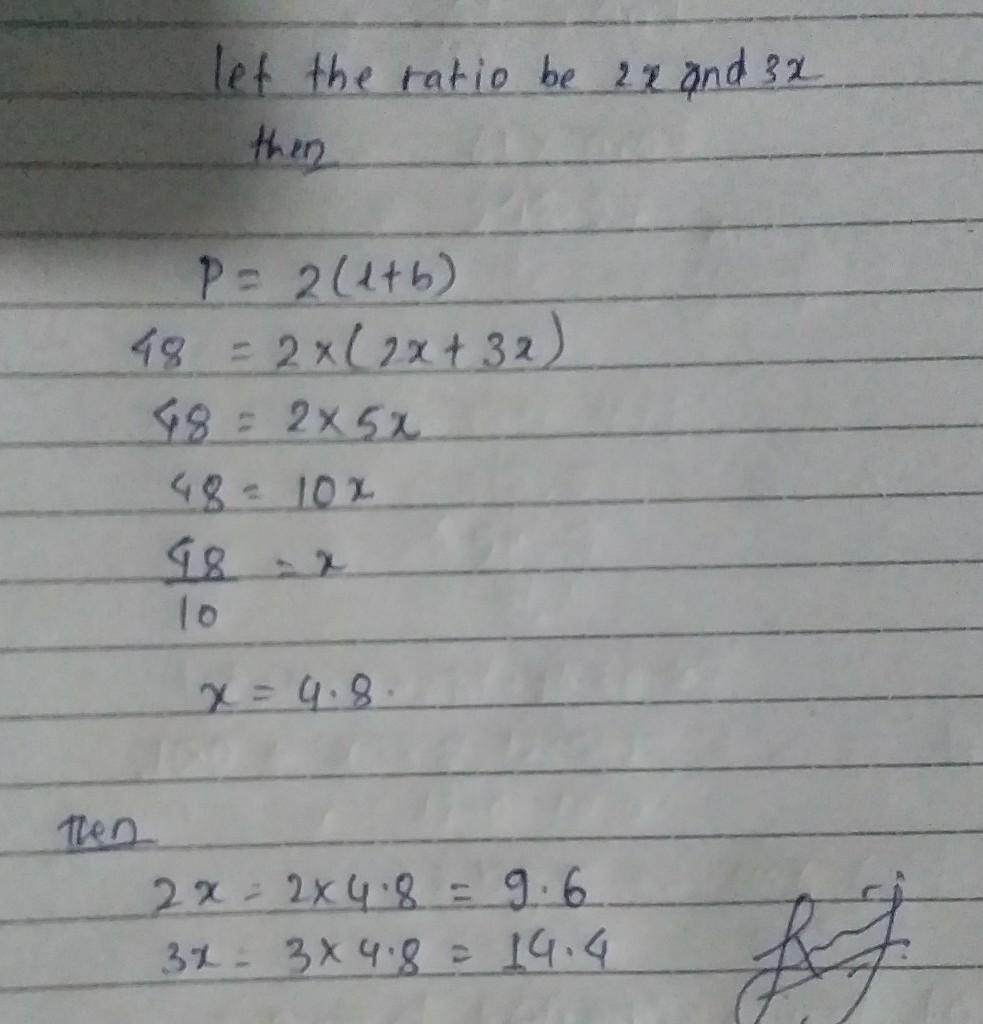 let the ratio be 2x and 3x
then
P = 2(l+b)
48 = 2×(2x+3x)
48 = 2×5x
48 = 10x
48/10 = x
x = 4.8.
then
2x = 2×4.8 = 9.6
3x = 3×4.8 = 14.4